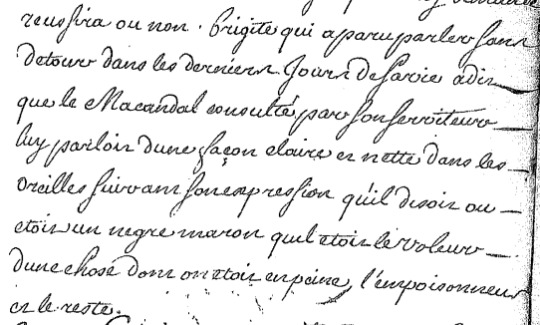 reussira ou non. Brigite qui a paru parler sans
detour dans les derniers Jours de sa vie a dit
que le Macandal consulté par son serviteur
luy parloit dune façon claire et nette dans les
oreilles suivant son expression qu'il disoit ou
etoit un negre maron quel etoit le voleur
dune chose dont on etoit en peine, l'empoisonneur
et le reste.